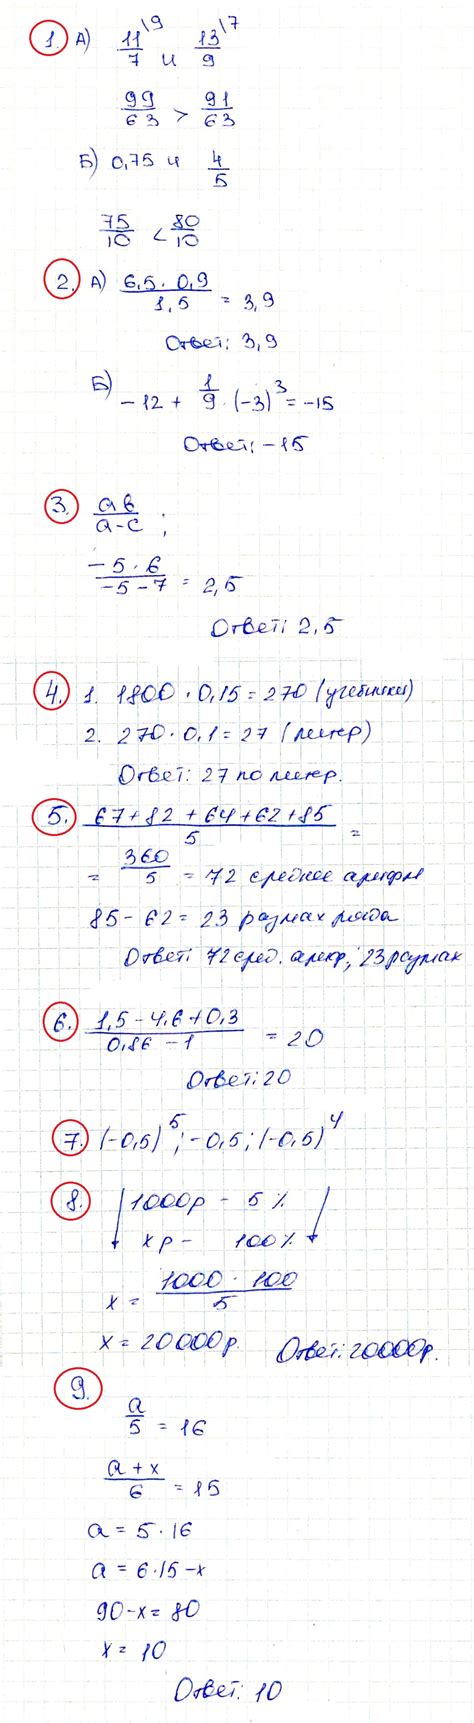 1. А) 11/7 \9 и 13/9 \7
99/63 > 91/63
Б) 0,75 и 4/5
75/10 < 80/10
2. А) 6,5 · 0,9 / 1,5 = 3,9
Ответ: 3,9
Б) -12 + 1/9 · (-3)³ = -15
Ответ: -15
3. ab/a-c ;
-5 · 6 / -5 - 7 = 2,5
Ответ: 2,5
4. 1. 1800 · 0,15 = 270 (учебники)
2. 270 · 0,1 = 27 (литер)
Ответ: 27 по литер.
5. 67 + 82 + 64 + 62 + 85 / 5 =
= 360/5 = 72 среднее арифм
85 - 62 = 23 размах ряда
Ответ: 72 сред. арифр; 23 размах
6. 1,5 - 4,6 + 0,3 / 0,86 - 1 = 20
Ответ: 20
7. (-0,5)⁵; -0,5; (-0,5)⁴
8. 1000р - 5%
x р - 100%
x = 1000 · 100 / 5
x = 20000р. Ответ: 20000р.
9.
a/5 = 16
a + x / 6 = 15
a = 5 · 16
a = 6 · 15 - x
90 - x = 80
x = 10
Ответ: 10